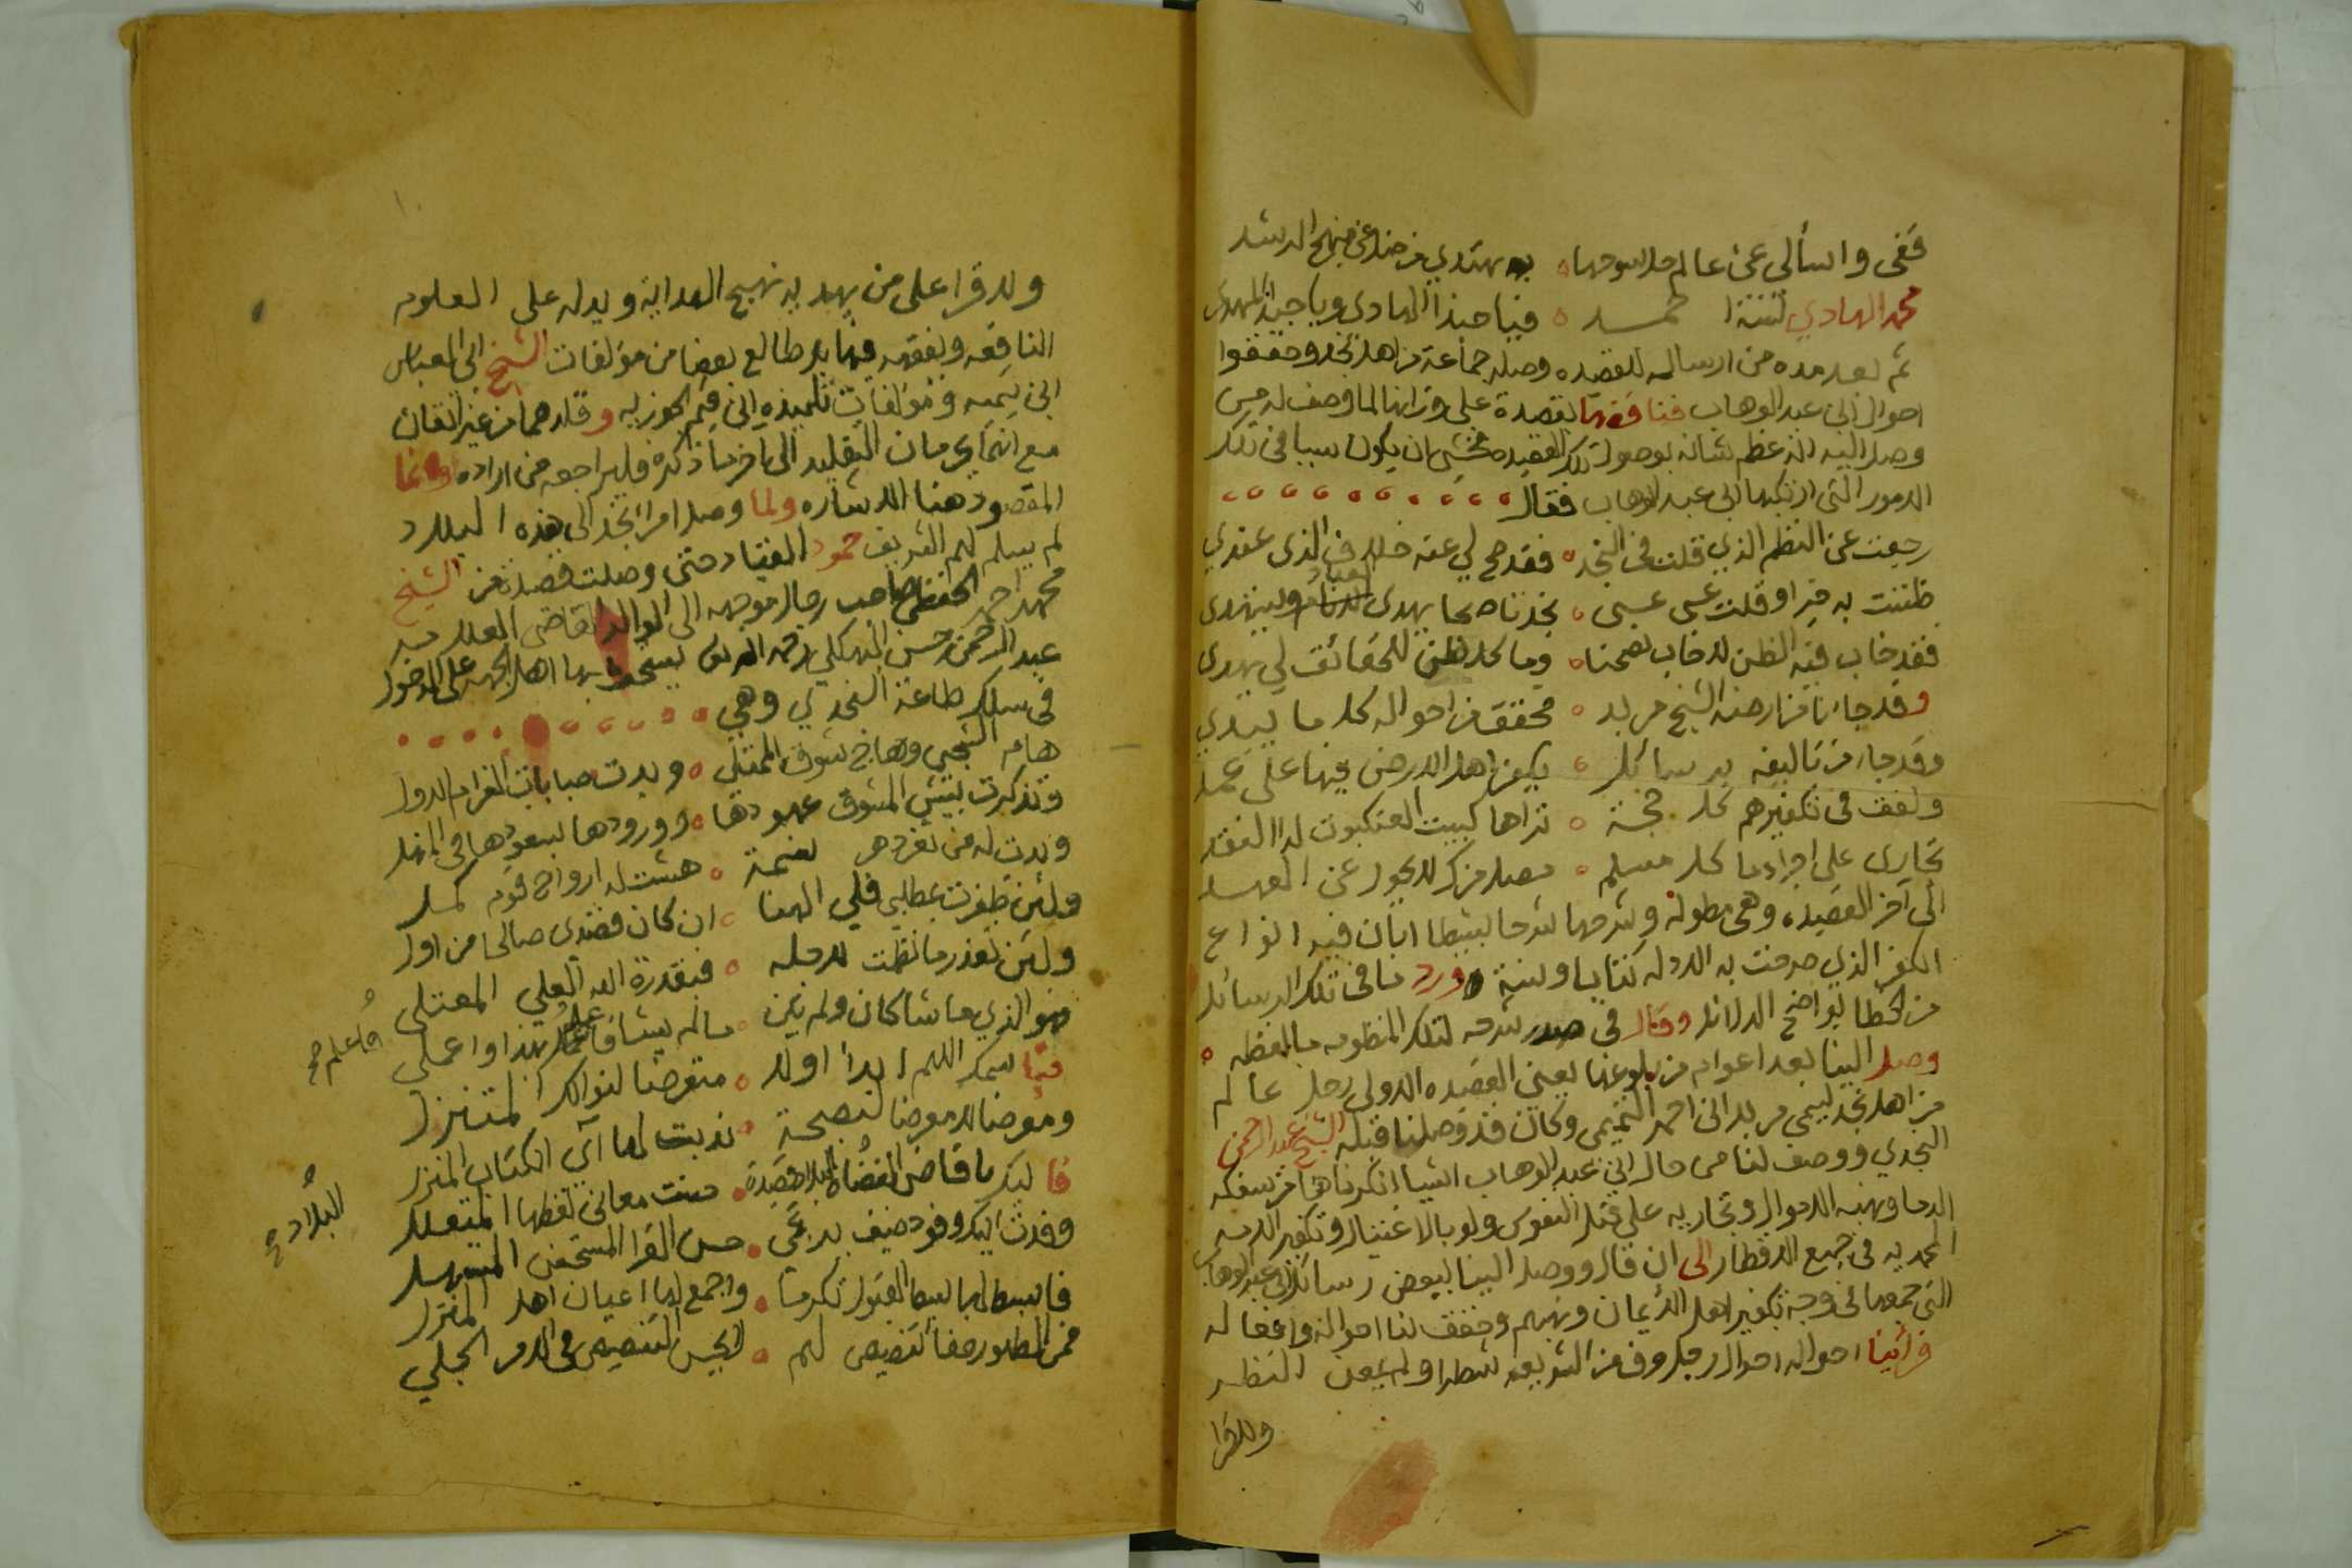 قفي واسألي عن عالم حل سوحها ه به يهتدي من ضل عن منهج الرشد
محمد الهادي لسنة احمد ه فيا حبذا الهادي ويا حبذا المهدي
ثم بعد مده من ارساله للقصيده وصله جماعة من اهل نجد وحققوا
احوال ابن عبد الوهاب فناقضها بقصدة على وزانها لما وصف له من
وصل اليه انه عظم شانه بوصول تلك القصيده فخشي ان يكون سببا في تلك
الامور التي ارتكبها ابن عبد الوهاب فقال
رجعت عن النظم الذي قلت في النجدي ه فقد صح لي عنه خلاف الذي عندي
ظننت به خيرا وقلت عسى عسى ه نجد ناصحا يهدي العباد ويستهدي
فقد خاب فيه الظن لا خاب نصحنا ه وما كل ظن للحقائق لي يهدي
وقد جاءنا من ارضه الشيخ مربد ه محقق من احواله كل ما يبدي
وقد جاء من تاليفه برسائل ه يكفر اهل الارض فيها على عمد
ولفق في تكفيرهم كل حجة ه تراها كبيت العنكبوت لدا النقد
تجارى على اجرا دما كل مسلم ه مصل مزك لا يحول عن العهد
الى آخر القصيده وهي مطولة وشرحها شرحا بسيطا ابان فيه انواع
الكفر الذي صرحت به الادله كتابا وسنة ورد ما في تلك الرسائل
من الخطا بواضح الدلائل وقال في صدر شرحه لتلك المنظومه ما لفظه ه
وصل الينا بعد اعوام من بلوغها يعني القصيده الاولى رجل عالم
من اهل نجد يسمى مربد ابن احمد التميمي وكان قد وصلنا قبله الشيخ عبد الرحمن
النجدي ووصف لنا من حال ابن عبد الوهاب اشيا انكرناها من سفكه
الدما ونهبه الاموال وتجاريه على قتل النفوس ولو بالاغتيال وتكفير الامه
المحمديه في جميع الاقطار الى ان قال ووصل الينا ببعض رسائل ابن عبد الوهاب
التي جمعها في وجه تكفير اهل الايمان ونهبهم وحقق لنا احواله وافعاله
فرأينا احواله احوال رجل عرف من الشريعه شطرا ولم يمعن النظر
ولا قرا
ولا قرا على من يهديه نهج الهداية ويدله على العلوم
النافعه ويفقهه فيها بل طالع بعضا من مؤلفات الشيخ ابي العباس
ابن تيميه ومؤلفات تلميذه ابن قيم الجوزيه وقلدهما من غير اتقان
مع انهما يحرمان التقليد الى اخر ما ذكره فليراجعه من اراده وانما
المقصود هنا الاشاره ولما وصل امرا نجد الى هذه البلاد
لم يسلم لهم الشريف حمود القياد حتى وصلت قصيدة من الشيخ
محمد احمد الحفظي صاحب رجال موجهه الى الوالد القاضي العلامه
عبد الرحمن بن حسن البهكلي رحمه الله بها اهل الجهه على الدخول
في سلك طاعة النجدي وهي
هام الشجي وهاج شوق الممتلي ه وبدت صبابات الغرام الاول
وتذكرت بنت المشوق عهودها ه وورودها بسعودها في المنهل
وبدت له من ثغر دهر بسمة ه هشت له ارواح قوم كمل
ولئن ظفرت بمطلبي فلي الهنا ه ان كان قصدي صالحا من اول
ولئن تعذر ما نظمت لاجله ه فبقدرة الله العلي المعتلي
فهو الذي ما شا كان ولم يكن ه ما لم يشا فاعلم بهذا واعمل
فاعلم صح
فباسمك اللهم ابدا اولا ه متعرضا لنوالك المتنزل
ومعرضا لا معرضا لنصيحة ه ندبت لها آي الكتاب المنزل
فاليك يا قاضي القضاة قصيدة ه حسنت معاني لفظها المتعلل
البلاد صح
وفدت اليك وفود ضيف يرتجي ه حسن القرا المستحسن المتسهل
فابسط لها بسط القبول تكرما ه واجمع لها اعيان اهل المنزل
فمن المطلوب حقا تنصيص لهم ه لا يحسن التنصيص في الامر الجلي